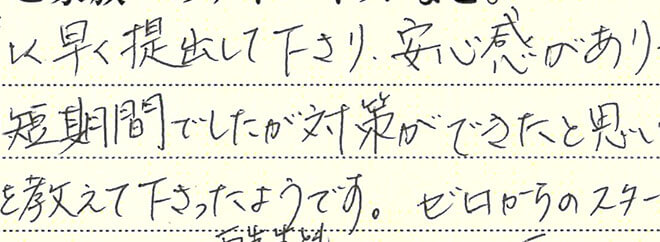 く早く提出して下さり、安心感があり
短期間でしたが対策ができたと思い
を教えて下さったようです。ゼロからのスター